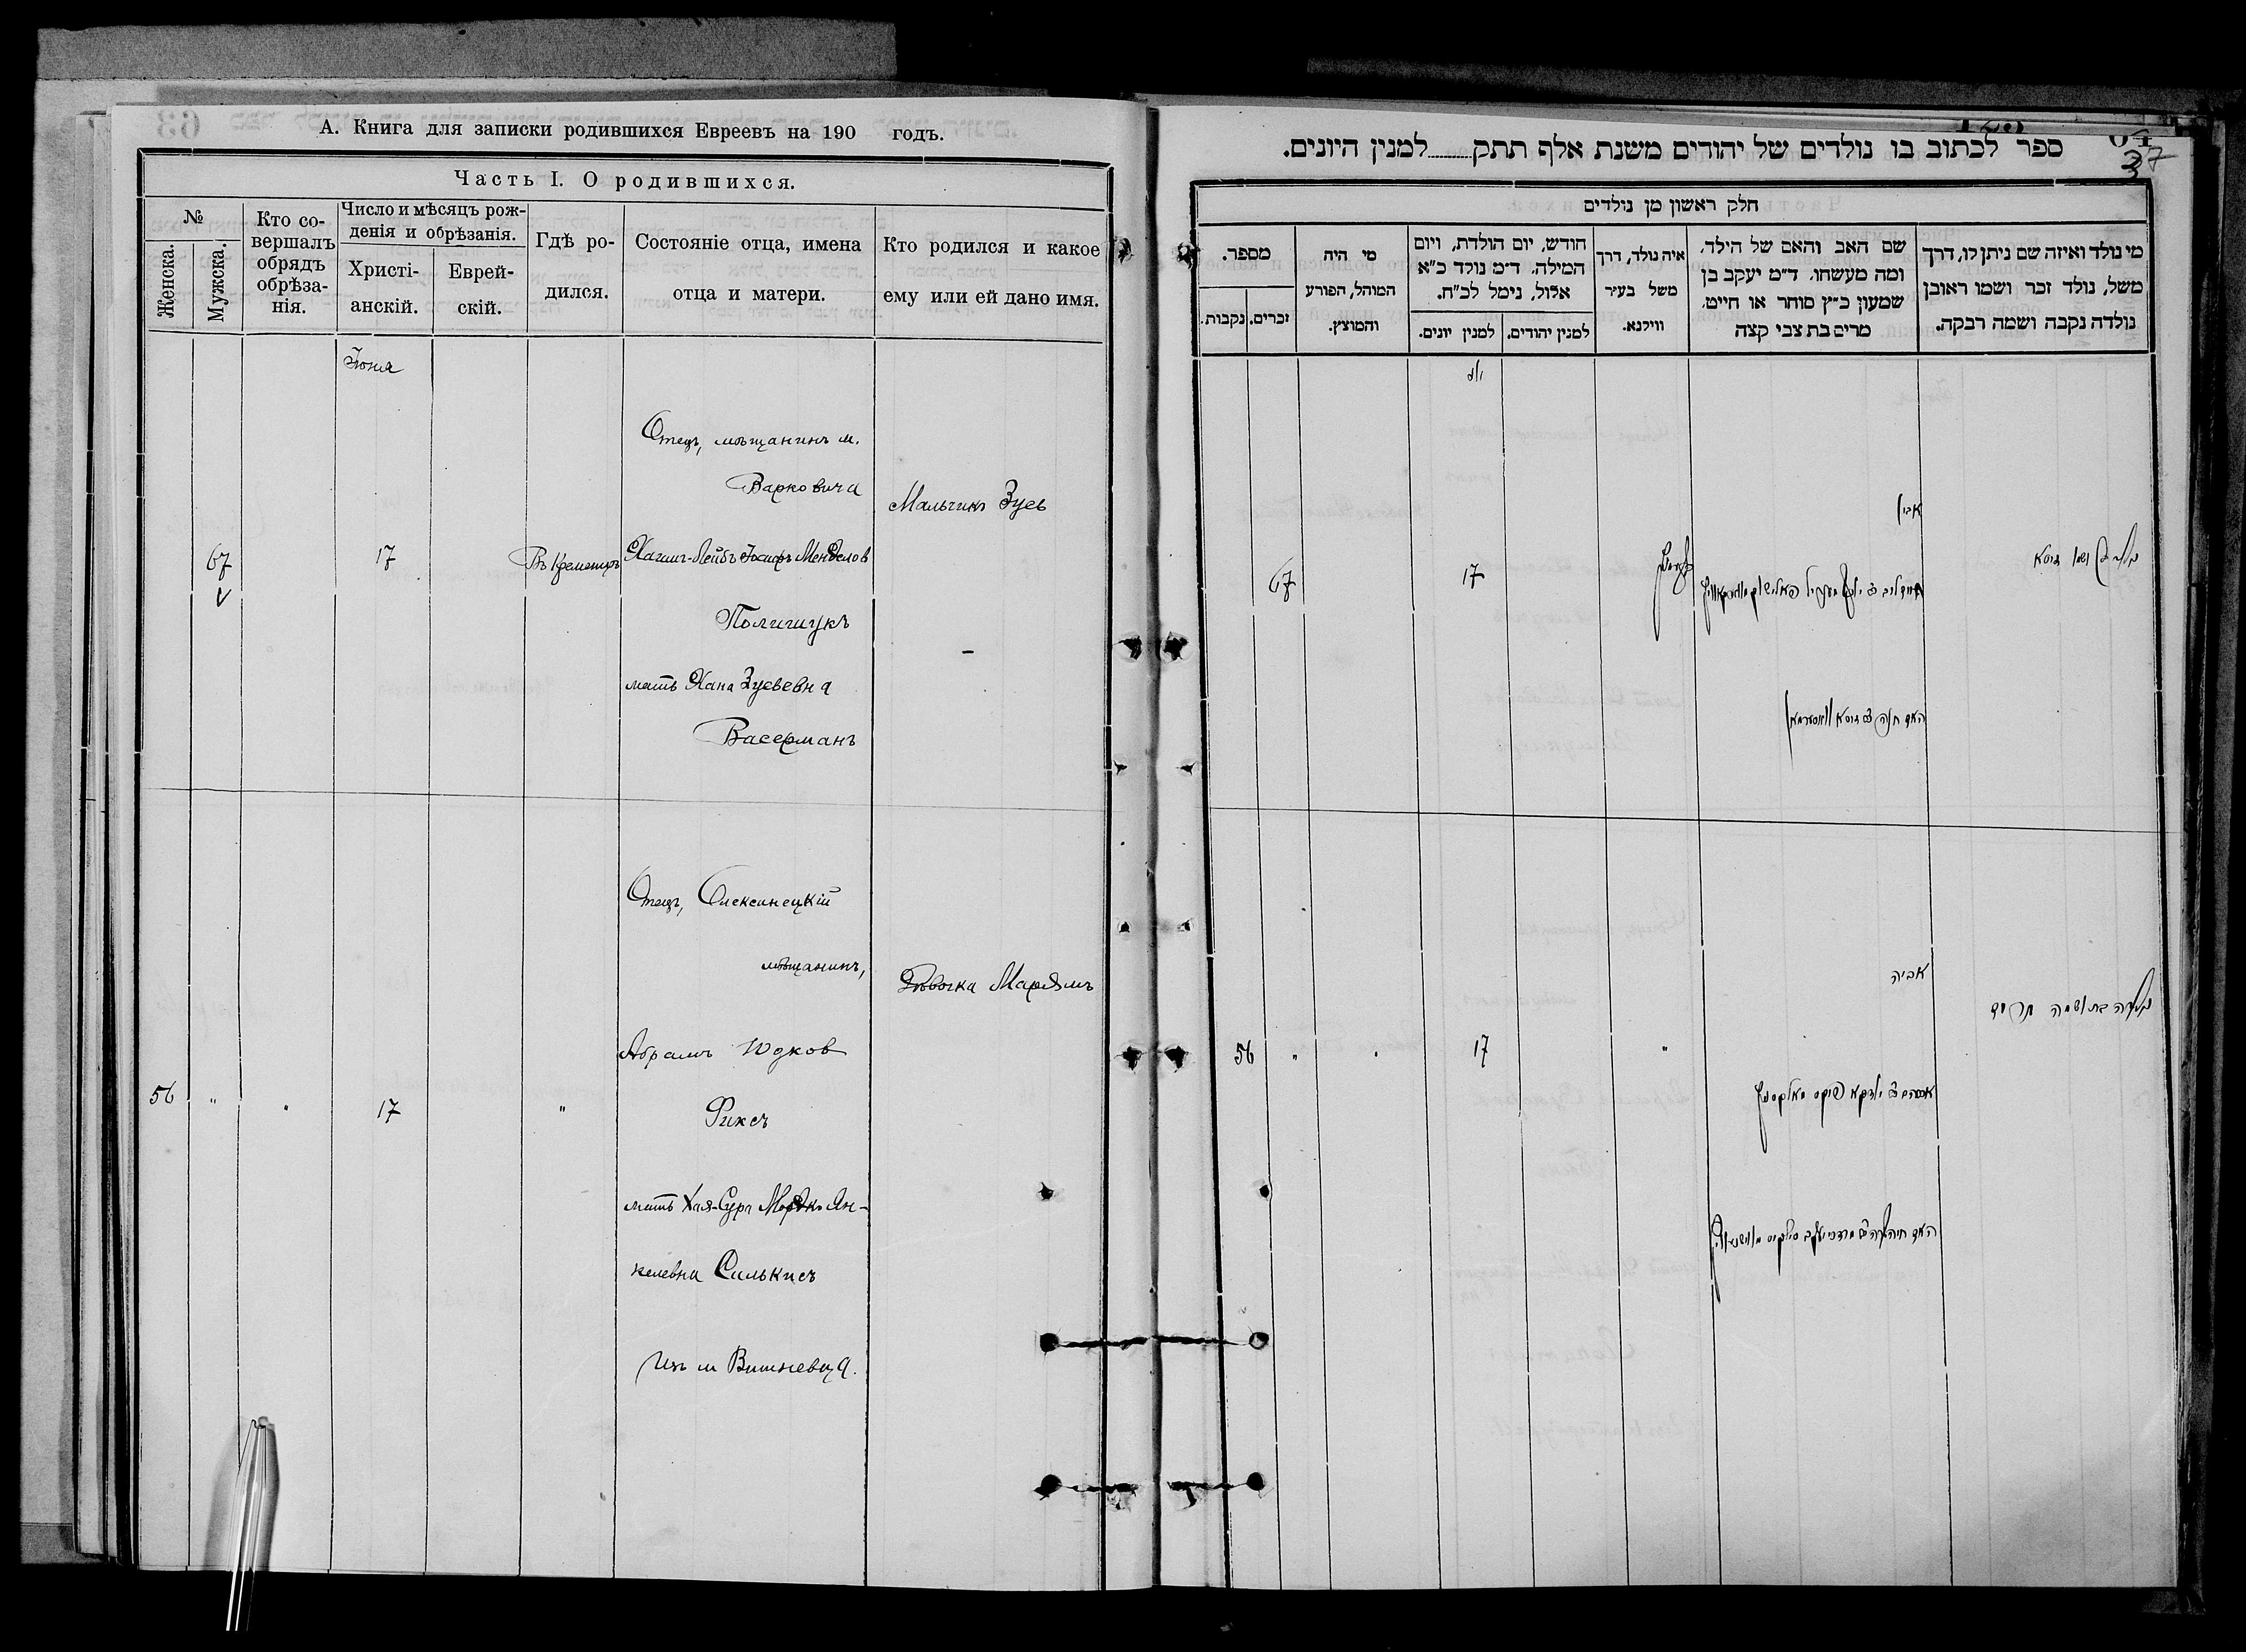 А. Книга для записки родившихся Евреевъ на 190 годъ.
Часть I. О родившихся.
№
Женска.
Мужска.
Кто со-
вершалъ
обрядъ
обрѣза-
нія.
Число и мѣсяцъ рож-
денія и обрѣзанія.
Христі-
анскій.
Еврей-
скій.
Гдѣ ро-
дился.
Состояніе отца, имена
отца и матери.
Кто родился и какое
ему или ей дано имя.
Іюня
Отецъ, мѣщанинъ м.
Варковича
Мальчикъ Зусь
67
17
Въ Кременцѣ
Хаимъ-Лейбъ Іосифъ Менделов
Полищукъ
мать Хана Зусьевна
Васерманъ
Отецъ, Олексинецкій
мѣщанинъ,
Дѣвочка Маріямъ
Абрамъ Юдков
56 " " 17 "
Фиксъ
мать Хая-Сура Мордко Ян-
келевна Силькисъ
изъ м Вишневца.
64
37
ספר לכתוב בו נולדים של יהודים משנת אלף תתק למנין היונים.
חלק ראשון מן נולדים
מספר.
זכרים.
נקבות.
מי היה
המוהל, הפורע
והמוצץ.
חודש, יום הולדת, ויום
המילה. ד״מ נולד כ״א
אלול, נימל לכ״ח.
למנין יונים.
למנין יהודים.
איה נולד, דרך
משל בעיר
ווילנא.
שם האב והאם של הילד.
ומה מעשהו. ד״מ יעקב בן
שמעון כ״ץ סוחר או חייט.
מרים בת צבי קצה
מי נולד ואיזה שם ניתן לו, דרך
משל, נולד זכר ושמו ראובן
נולדה נקבה ושמה רבקה.
אביו
67
17
נולד בן ושמו זוסא
האם חנה בת זוסא וואסערמאן
אביה
נולדה בת ושמה מרים
56 " " 17 "
אברהם בת יודקא פיקס